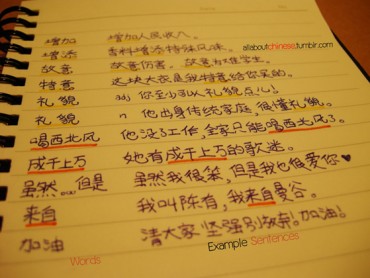 allaboutchinese.tumblr.com
增加 增加人民收入。
增添 香料增添特殊风味。
故意 故意伤害。故意为难学生。
特意 这块大衣是我特意给你买的。
礼貌 adj 你至少以礼貌点儿!
礼貌 n 他出身传统家庭,很懂礼貌。
喝西北风 他没了工作,全家只能喝西北风了。
成千上万 她有成千上万的歌迷。
虽然……但是 虽然我很笨,但是我也很爱你♥
来自 我叫陈有,我来自曼谷。
加油 请大家坚强别放弃!加油!
Words Example Sentences